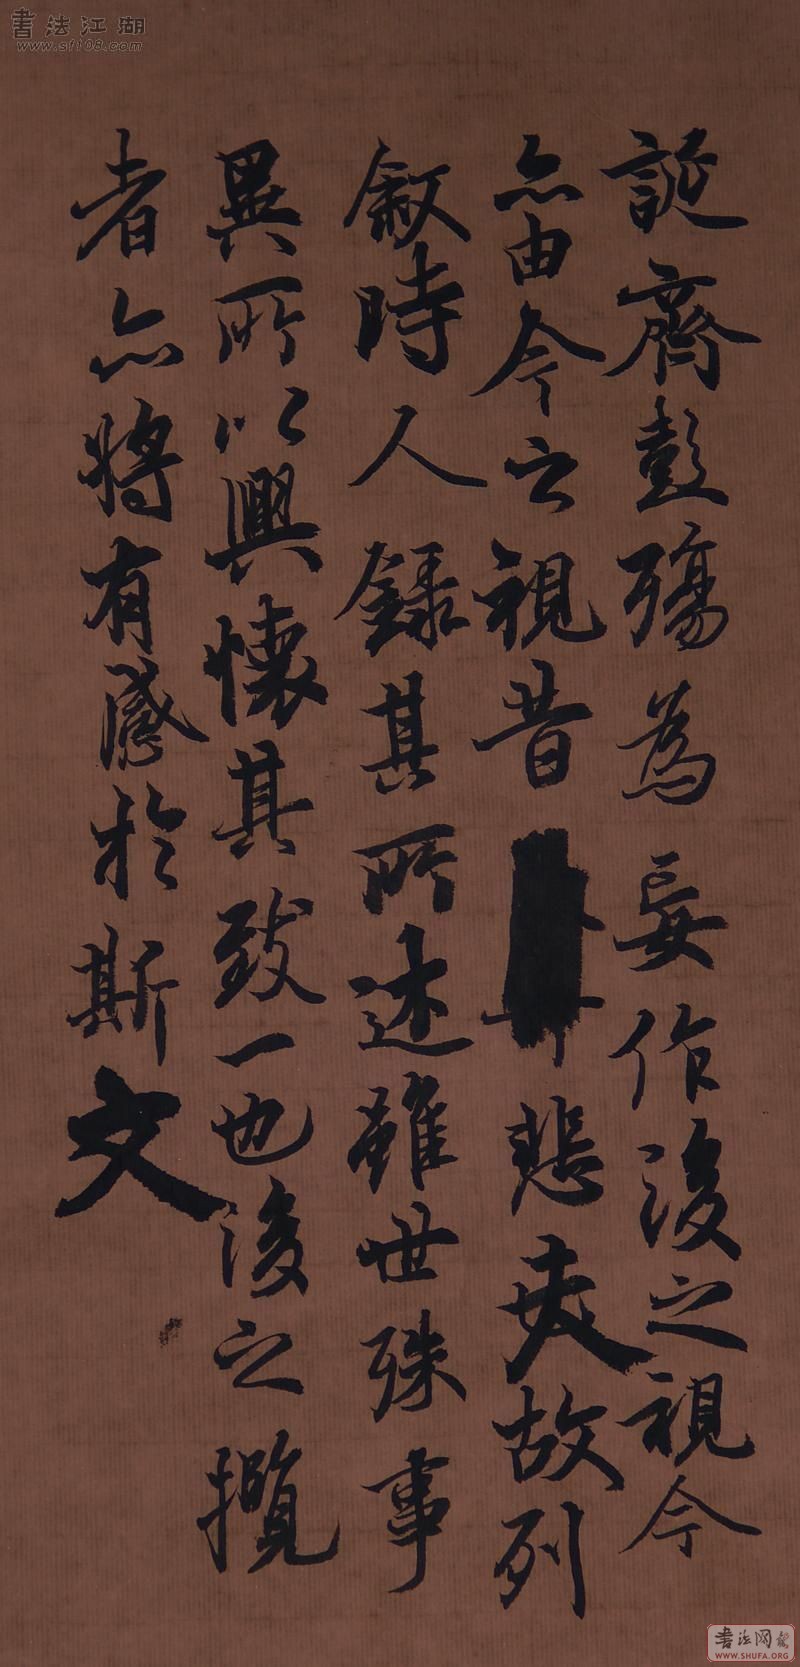 誕齊彭殤為妄作後之視今
亦由今之視昔悲夫故列
敘時人錄其所述雖世殊事
異所以興懷其致一也後之攬
者亦將有感於斯文
書法江湖
www.sf108.com
書法网
WWW.SHUFA.ORG